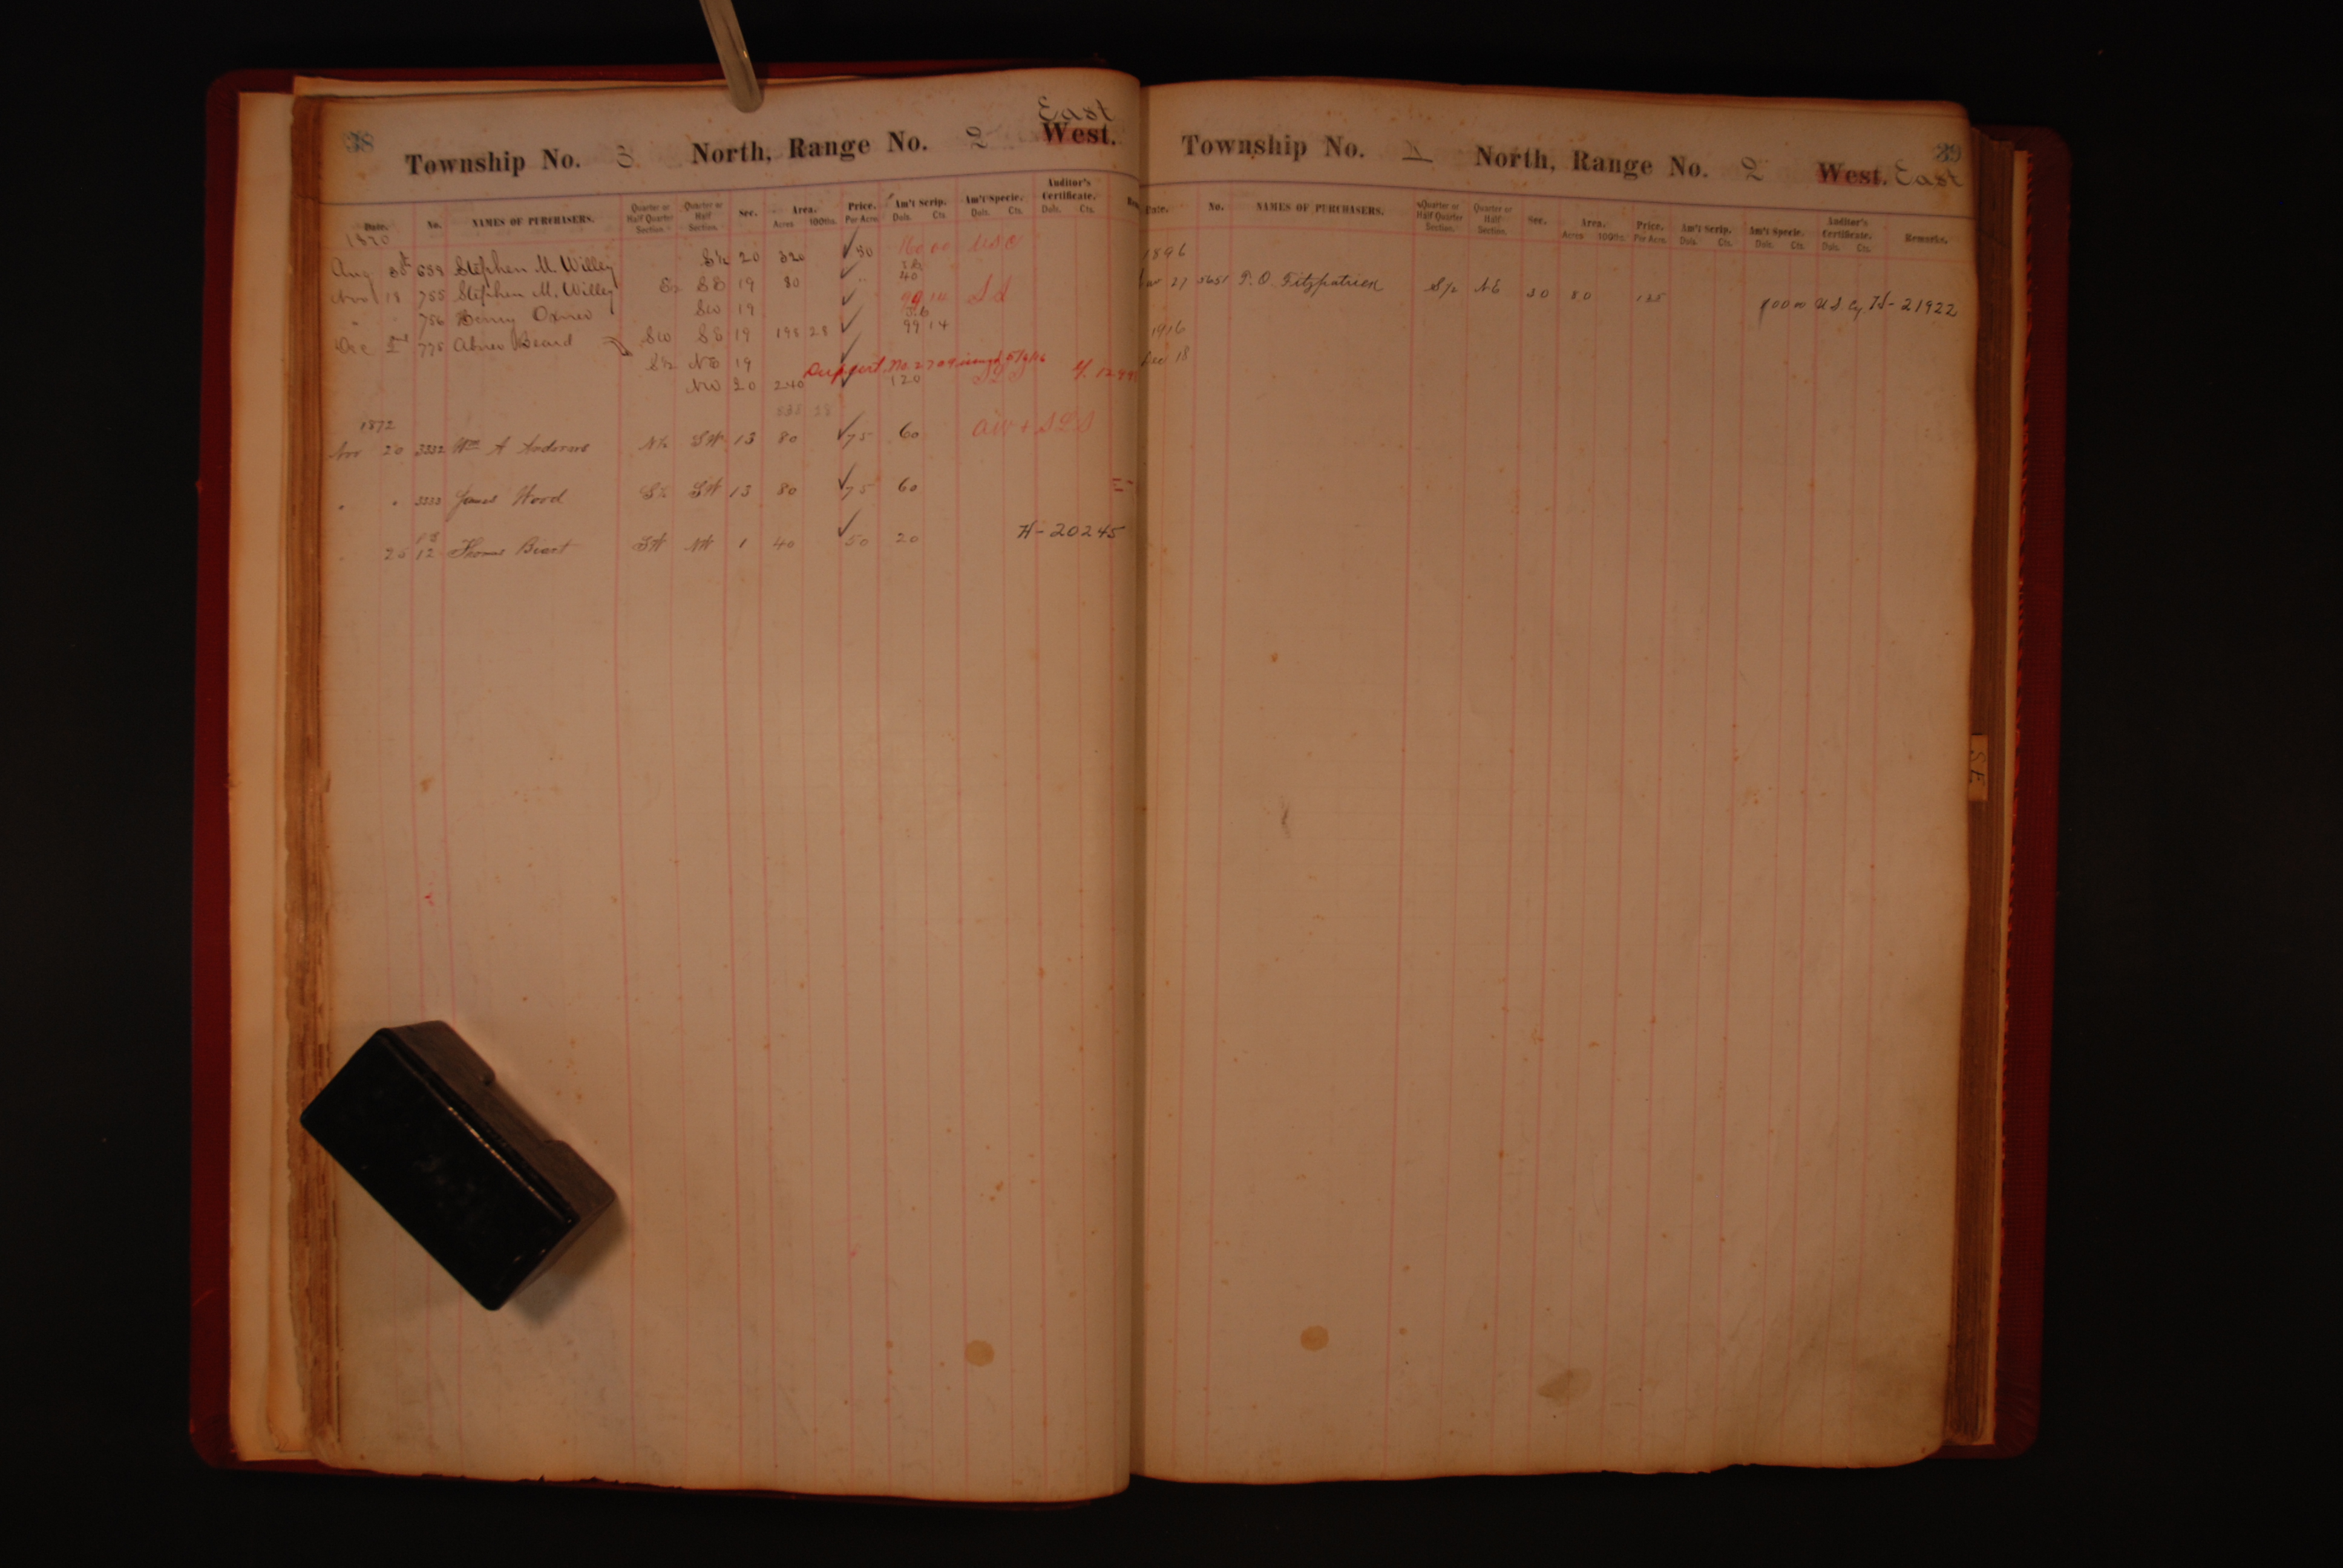 38
East
Township No. 3 North, Range No. 2 West.
Date. No. NAMES OF PURCHASERS. Quarter or Half Quarter Section. Quarter or Half Section. Sec. Area. Acres 100ths. Price. Per Acre Am't Scrip. Dols. Cts. Am't Specie. Dols. Cts. Auditor's Certificate. Dols. Cts.
1870
Aug 689 Stephen M. Willey S½ 20 320 50 160 00
Nov 18 755 Stephen M. Willey SE 19 80 " 40
" 756 Henry SW 19 99 14
Dec 775 Abner Beard SW SE 19 198 28 99 14
S½ NE 19
NW 20 240 120
838 28
1872
Nov 20 3332 Wm A Andrews N½ SW 13 80 75 60
" " 3333 James Wood S½ SW 13 80 75 60
" 25 12 Thomas SW NW 1 40 50 20 H-20245
39
Township No. North, Range No. 2 West. East
Date. No. NAMES OF PURCHASERS. Quarter or Half Quarter Section. Quarter or Half Section. Sec. Area. Acres 100ths. Price. Per Acre. Am't Scrip. Dols. Cts. Am't Specie. Dols. Cts. Auditor's Certificate. Dols. Cts. Remarks.
1896
27 5651 P. O. Fitzpatrick S½ NE 30 80 125 100 00 U.S. Cy. H-21922
1916
Dec 18
S.E.